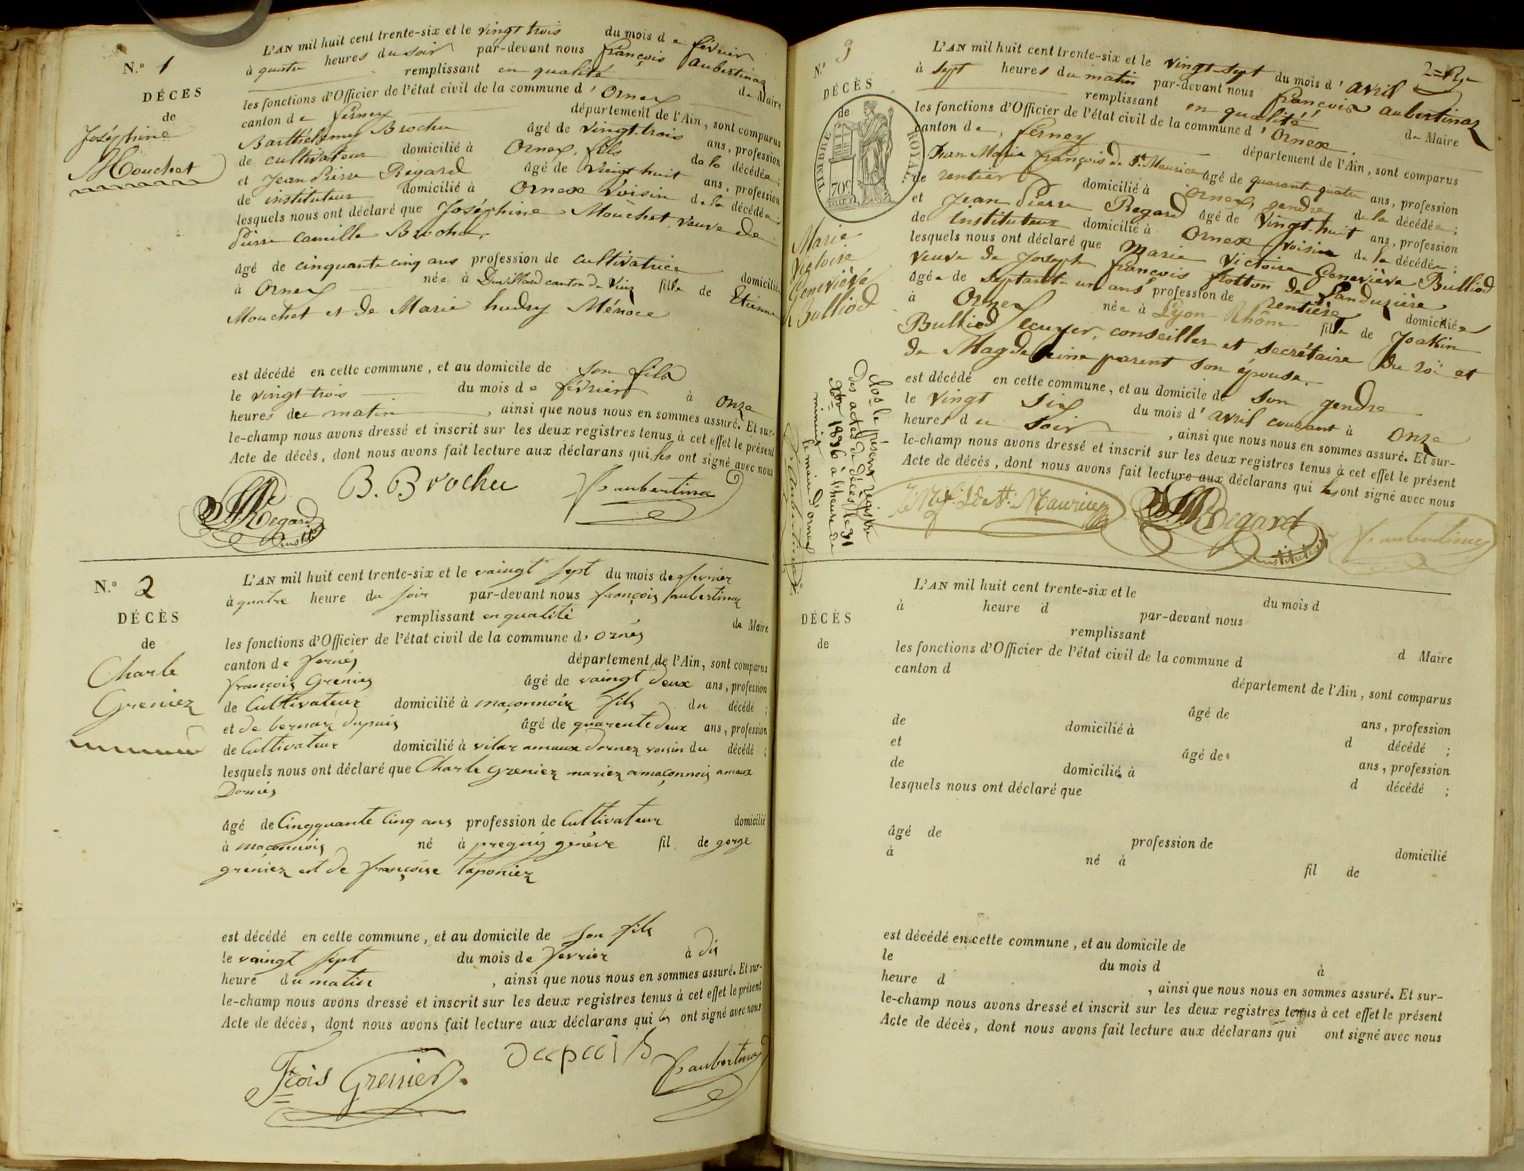 N.º 1
DÉCES
de
Joséphine
Mouchet
L'AN mil huit cent trente-six et le vingt trois du mois de février
à quatre heures du soir par-devant nous françois aubertinaz
remplissant en qualité de Maire
les fonctions d'Officier de l'état civil de la commune d' Ornex
canton de ferney département de l'Ain, sont comparus
Barthélemy Brochu âgé de vingt trois ans, profession
de cultivateur domicilié à Ornex, fils de la décédée ;
et Jean Pierre Regard âgé de vingt huit ans, profession
de instituteur domicilié à Ornex Voisin de la décédée ;
lesquels nous ont déclaré que Joséphine Mouchet, veuve de
Pierre camille Brochu,
âgé de cinquante cinq ans profession de cultivatrice domiciliée
à Ornex née à canton de fille de Etienne
Mouchet et de Marie hudry Ménoce
est décédé en cette commune, et au domicile de son fils
le vingt trois du mois de février à onze
heures du matin, ainsi que nous nous en sommes assuré. Et sur-
le-champ nous avons dressé et inscrit sur les deux registres tenus à cet effet le présent
Acte de décès, dont nous avons fait lecture aux déclarans qui les ont signé avec nous
B. Brochu
Regard
faubertinaz
N.º 2
DÉCÈS
de
Charle
Greniez
L'AN mil huit cent trente-six et le vaingt sept du mois de fevrier
à quatre heure du soir par-devant nous françois aubertinaz
remplissant en qualité de Maire
les fonctions d'Officier de l'état civil de la commune d' ornés
canton de fernés département de l'Ain, sont comparus
françois Greniez âgé de vaingt deux ans, profession
de Cultivateur domicilié à maçonnoix fils du décédé ;
et de bernar dupuis âgé de quarente deux ans, profession
de Cultivateur domicilié à vilar amaux dornez voisin du décédé ;
lesquels nous ont déclaré que Charle greniez mariez a maçonnoix amaux
Dornés
âgé de Cingquante Cinq ans profession de Cultivateur domicilié
à maconnoix né à pregniy genève fil de gorge
gréniez est de françoise taponiez
est décédé en cette commune, et au domicile de son fils
le vaingt sept du mois de fevrier à dis
heure du matin, ainsi que nous nous en sommes assuré. Et sur-
le-champ nous avons dressé et inscrit sur les deux registres tenus à cet effet le présent
Acte de décès, dont nous avons fait lecture aux déclarans qui les ont signé avec nous
Frois Grenier
Dupuis
faubertinaz
N.º 3
DÉCÈS
de
TIMBRE ROYAL.
70c
Marie
Victoire
Geneviève
Bulliod
L'AN mil huit cent trente-six et le vingt-sept du mois d'avril
à sept heures du matin par-devant nous françois aubertinaz
remplissant en qualité de Maire
les fonctions d'Officier de l'état civil de la commune d' Ornex
canton de ferney département de l'Ain, sont comparus
Jean Marie françois de St. Maurice âgé de quarante quatre ans, profession
de rentier domicilié à Ornex, gendre de la décédée ;
et Jean Pierre Regard âgé de Vingt-huit ans, profession
de Instituteur domicilié à Ornex voisin de la décédée ;
lesquels nous ont déclaré que Marie Victoire Geneviève Bulliod
veuve de Joseph françois de
âgée de septante un ans profession de rentière domiciliée
à Ornex née à Lyon Rhône fille de Joakin
Bulliod Ecuyer, conseiller et secrétaire du roi et
de Magdeleine parent son épouse.
est décédé en cette commune, et au domicile de son gendre
le vingt six du mois d'avril courant à onze
heures du soir, ainsi que nous nous en sommes assuré. Et sur-
le-champ nous avons dressé et inscrit sur les deux registres tenus à cet effet le présent
Acte de décès, dont nous avons fait lecture aux déclarans qui les ont signé avec nous
Regard
instituteur
faubertinaz
Clos le présent registre
des actes de décès le 31
Xbre 1836 à l'heure de
minuit
le maire d'ornex
DÉCÈS
de
L'AN mil huit cent trente-six et le du mois d
à heure d par-devant nous
remplissant d Maire
les fonctions d'Officier de l'état civil de la commune d
canton d département de l'Ain, sont comparus
âgé de ans, profession
de domicilié à d décédé ;
et âgé de ans, profession
de domicilié à d décédé ;
lesquels nous ont déclaré que
âgé de profession de domicilié
à né à fil de
est décédé en cette commune, et au domicile de
le du mois d à
heure d , ainsi que nous nous en sommes assuré. Et sur-
le-champ nous avons dressé et inscrit sur les deux registres tenus à cet effet le présent
Acte de décès, dont nous avons fait lecture aux déclarans qui ont signé avec nous